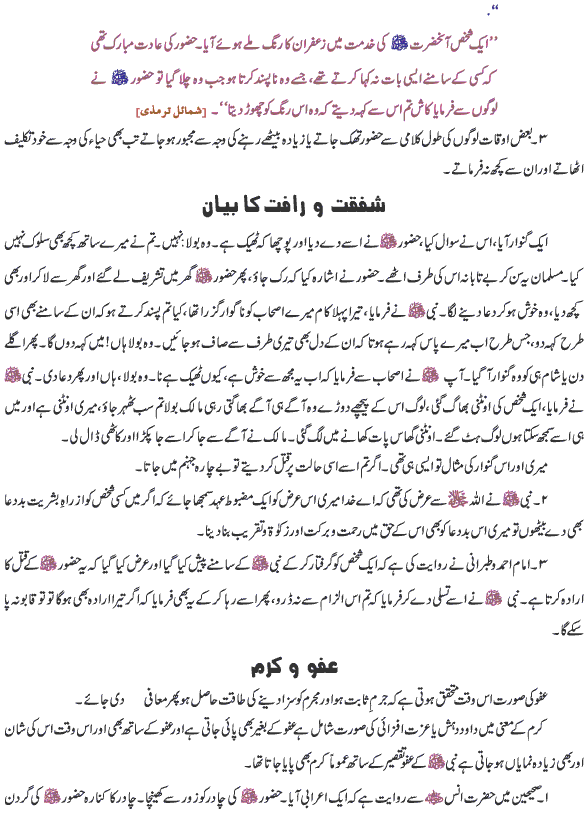 “.
’’ایک شخص آنحضرت ﷺ کی خدمت میں زعفران کا رنگ ملے ہوئے آیا۔ حضور کی عادت مبارک تھی
کہ کسی کے سامنے ایسی بات نہ کہا کرتے تھے، جسے وہ ناپسند کرتا ہو جب وہ چلا گیا تو حضور ﷺ نے
لوگوں سے فرمایا کاش تم اس سے کہہ دیتے کہ وہ اس رنگ کو چھوڑ دیتا‘‘۔ [شمائل ترمذی]
۳۔ بعض اوقات لوگوں کی طول کلامی سے حضور تھک جاتے یا زیادہ بیٹھے رہنے کی وجہ سے مجبور ہو جاتے تب بھی حیاء کی وجہ سے خود تکلیف
اٹھاتے اور ان سے کچھ نہ فرماتے۔
شفقت و رافت کا بیان
ایک گنوار آیا، اس نے سوال کیا، حضور ﷺ نے اسے دے دیا اور پوچھا کہ ٹھیک ہے۔ وہ بولا: نہیں۔ تم نے میرے ساتھ کچھ بھی سلوک نہیں
کیا۔ مسلمان یہ سن کر بے تابانہ اس کی طرف اٹھے۔ حضور نے اشارہ کیا کہ رک جاؤ، پھر حضور ﷺ گھر میں تشریف لے گئے اور گھر سے لا کر اور بھی
کچھ دیا، وہ خوش ہو کر دعا دینے لگا۔ نبی ﷺ نے فرمایا، تیرا پہلا کام میرے اصحاب کو ناگوار گزرا تھا، کیا تم پسند کرتے ہو کہ ان کے سامنے بھی اسی
طرح کہہ دو، جس طرح اب میرے پاس کہہ رہے ہو تاکہ ان کے دل بھی تیری طرف سے صاف ہو جائیں۔ وہ بولا ہاں! میں کہہ دوں گا۔ پھر اگلے
دن یا شام ہی کو وہ گنوار آ گیا۔ آپ ﷺ نے اصحاب سے فرمایا کہ اب یہ مجھ سے خوش ہے، کیوں ٹھیک ہے نا۔ وہ بولا، ہاں اور پھر دعا دی۔ نبی ﷺ
نے فرمایا، ایک شخص کی اونٹنی بھاگ گئی، لوگ اس کے پیچھے دوڑے وہ آگے ہی آگے بھاگتی رہی مالک بولا تم سب ٹھہر جاؤ، میری اونٹنی ہے اور میں
ہی اسے سمجھ سکتا ہوں لوگ ہٹ گئے۔ اونٹنی گھاس پات کھانے میں لگ گئی۔ مالک نے آگے سے جا کر اسے جا پکڑا اور کاٹھی ڈال لی۔
میری اور اس گنوار کی مثال تو ایسی ہی تھی۔ اگر تم اسے اسی حالت پر قتل کر دیتے تو بے چارہ جہنم میں جاتا۔
۲۔ نبی ﷺ نے اللہ ﷻ سے عرض کی تھی کہ اے خدا میری اس عرض کو ایک مضبوط عہد سمجھا جائے کہ اگر میں کسی شخص کو از راہِ بشریت بد دعا
بھی دے بیٹھوں تو میری اس بد دعا کو بھی اس کے حق میں رحمت و برکت اور زکوۃ و تقریب بنا دینا۔
۳۔ امام احمد و طبرانی نے روایت کی ہے کہ ایک شخص کو گرفتار کر کے نبی ﷺ کے سامنے پیش کیا گیا اور عرض کیا گیا کہ یہ حضور ﷺ کے قتل کا
ارادہ کرتا ہے۔ نبی ﷺ نے اسے تسلی دے کر فرمایا کہ تم اس الزام سے نہ ڈرو، پھر اسے رہا کر کے یہ بھی فرمایا کہ اگر تیرا ارادہ بھی ہو گا تو تو قابو نہ پا
سکے گا۔
عفو و کرم
عفو کی صورت اس وقت متحقق ہوتی ہے کہ جرم ثابت ہو اور مجرم کو سزا دینے کی طاقت حاصل ہو پھر معافی دی جائے۔
کرم کے معنی میں داد و دہش یا عزت افزائی کی صورت شامل ہے عفو کے بغیر بھی پائی جاتی ہے اور عفو کے ساتھ بھی اور اس وقت اس کی شان
اور بھی زیادہ نمایاں ہو جاتی ہے نبی ﷺ کے عفو تقصیر کے ساتھ عموماً کرم بھی پایا جاتا تھا۔
۱۔ صحیحین میں حضرت انس سے روایت ہے کہ ایک اعرابی آیا۔ حضور ﷺ کی چادر کو زور سے کھینچا۔ چادر کا کنارہ حضور ﷺ کی گردن